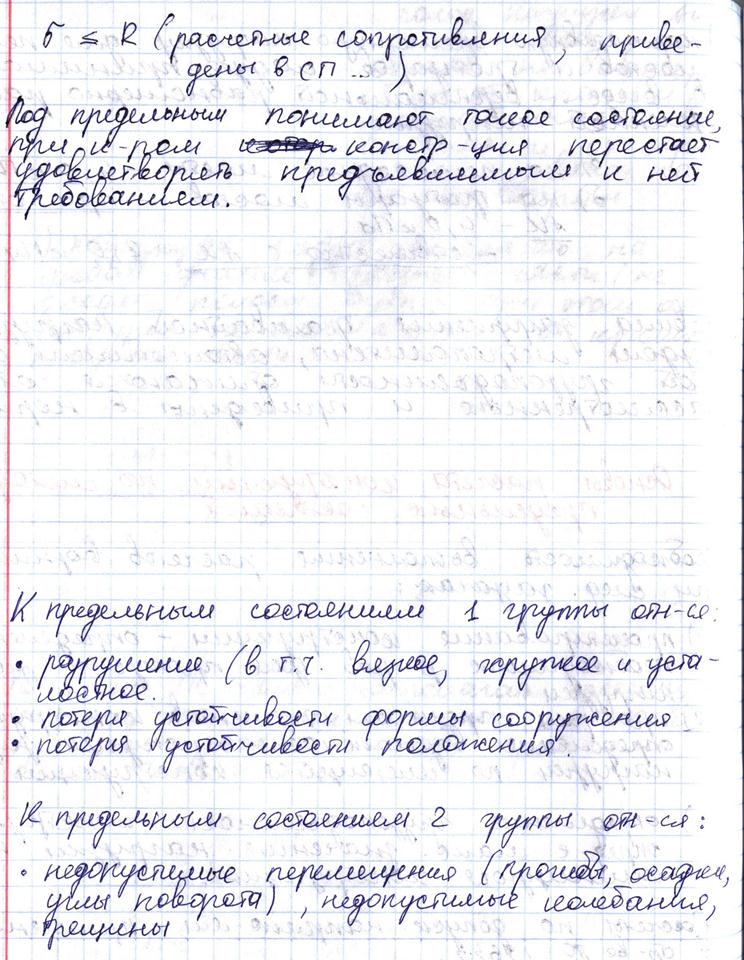 б ≤ R (расчетные сопротивления, приве-
дены в СП ...)
Под предельным понимают такое состояние,
при к-ром констр-ция перестает
удовлетворять предъявляемым к ней
требованием.
К предельным состояниям 1 группы отн-ся:
• разрушение (в т.ч. вязкое, хрупкое и уста-
лостное.
• потеря устойчивости формы сооружения
• потеря устойчивости положения.
К предельным состояниям 2 группы отн-ся:
• недопустимые перемещения (прогибы, осадки,
углы поворота), недопустимые колебания,
трещены